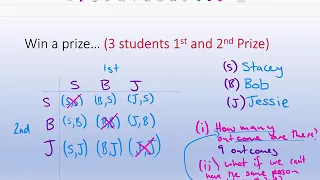 Win a prize... (3 students 1st and 2nd Prize)
1st
S B J
S (S,S) (B,S) (J,S)
2nd B (S,B) (B,B) (J,B)
J (S,J) (B,J) (J,J)
(S) Stacey
(B) Bob
(J) Jessie
(i) How many
outcome are there?
9 outcomes
(ii) what if we can't
have the same person